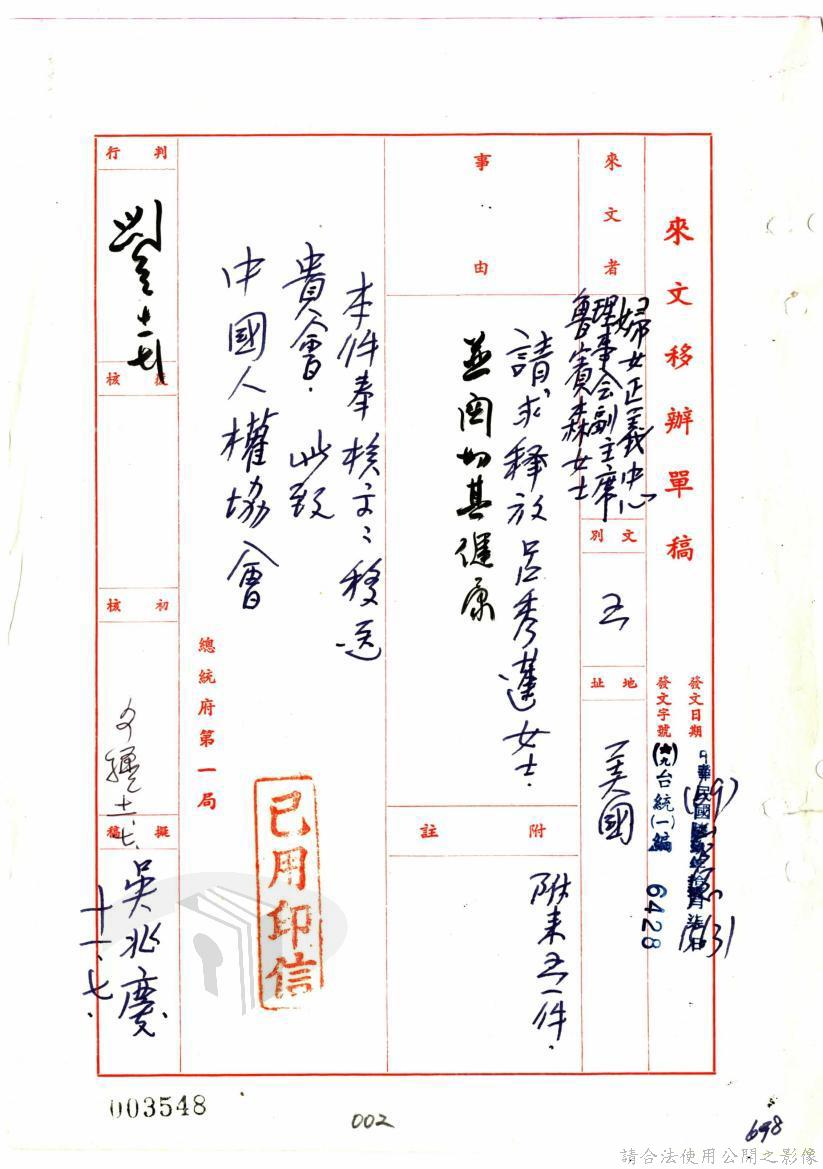 來文移辦單稿
發文日期
中華民國
發文字號
台統(一)編
6428
來文者
婦女正義中心
理事會副主席
魯賓森女士
文別
地址
美國
事由
請求釋放呂秀蓮女士.
並關切其健康
附註
附來 一件.
本件奉核交:移送
貴會. 此致
中國人權協會
總統府第一局
已用印信
判行
覆核
初核
十一.七.
擬稿
吳兆慶
十一.七.
003548
002
698
請合法使用公開之影像